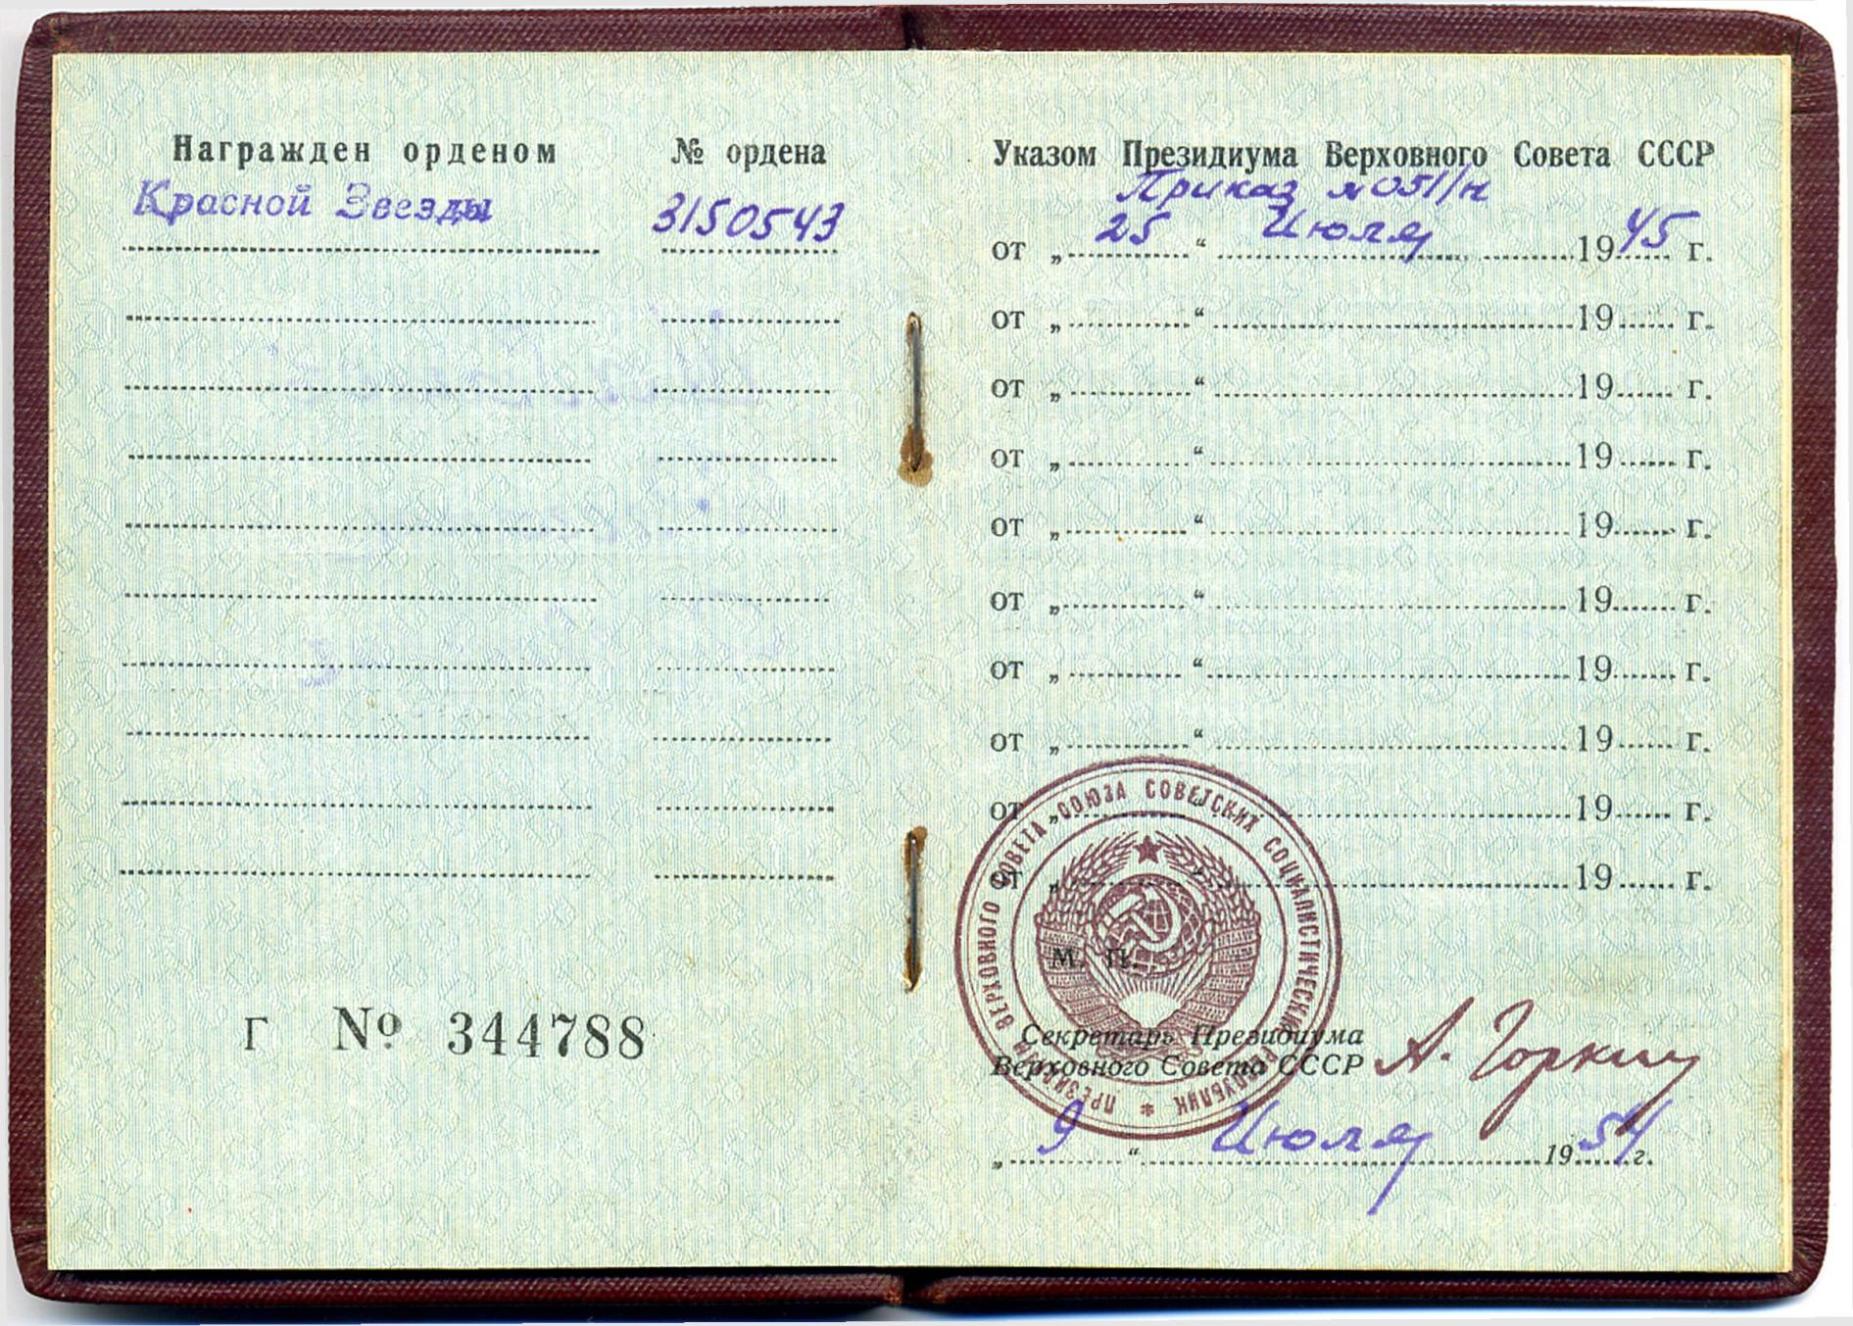 Награжден орденом № ордена
Красной Звезды 3150543
Г № 344788
Указом Президиума Верховного Совета СССР
Приказ №051/н
от „25“ Июля 1945 г.
от „ “ 19 г.
от „ “ 19 г.
от „ “ 19 г.
от „ “ 19 г.
от „ “ 19 г.
от „ “ 19 г.
от „ “ 19 г.
от „ “ 19 г.
от „ “ 19 г.
ПРЕЗИДИУМ ВЕРХОВНОГО СОВЕТА СОЮЗА СОВЕТСКИХ СОЦИАЛИСТИЧЕСКИХ РЕСПУБЛИК *
М. П.
Секретарь Президиума
Верховного Совета СССР А. Горкин
„9“ Июля 1954 г.